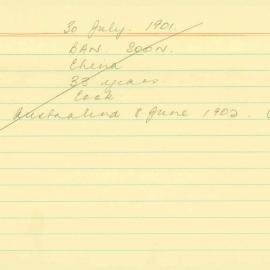 30 July. 1901.
BAN. SOON.
China
33 years.
Cook.
Australind 8 June 1902.